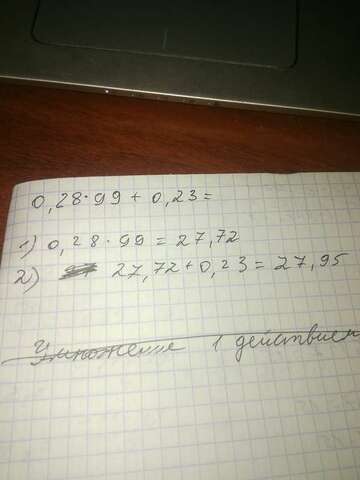 0,28·99 + 0,23 =
1) 0,28·99 = 27,72
2) 27,72+0,23 = 27,95
Умножение 1 действием